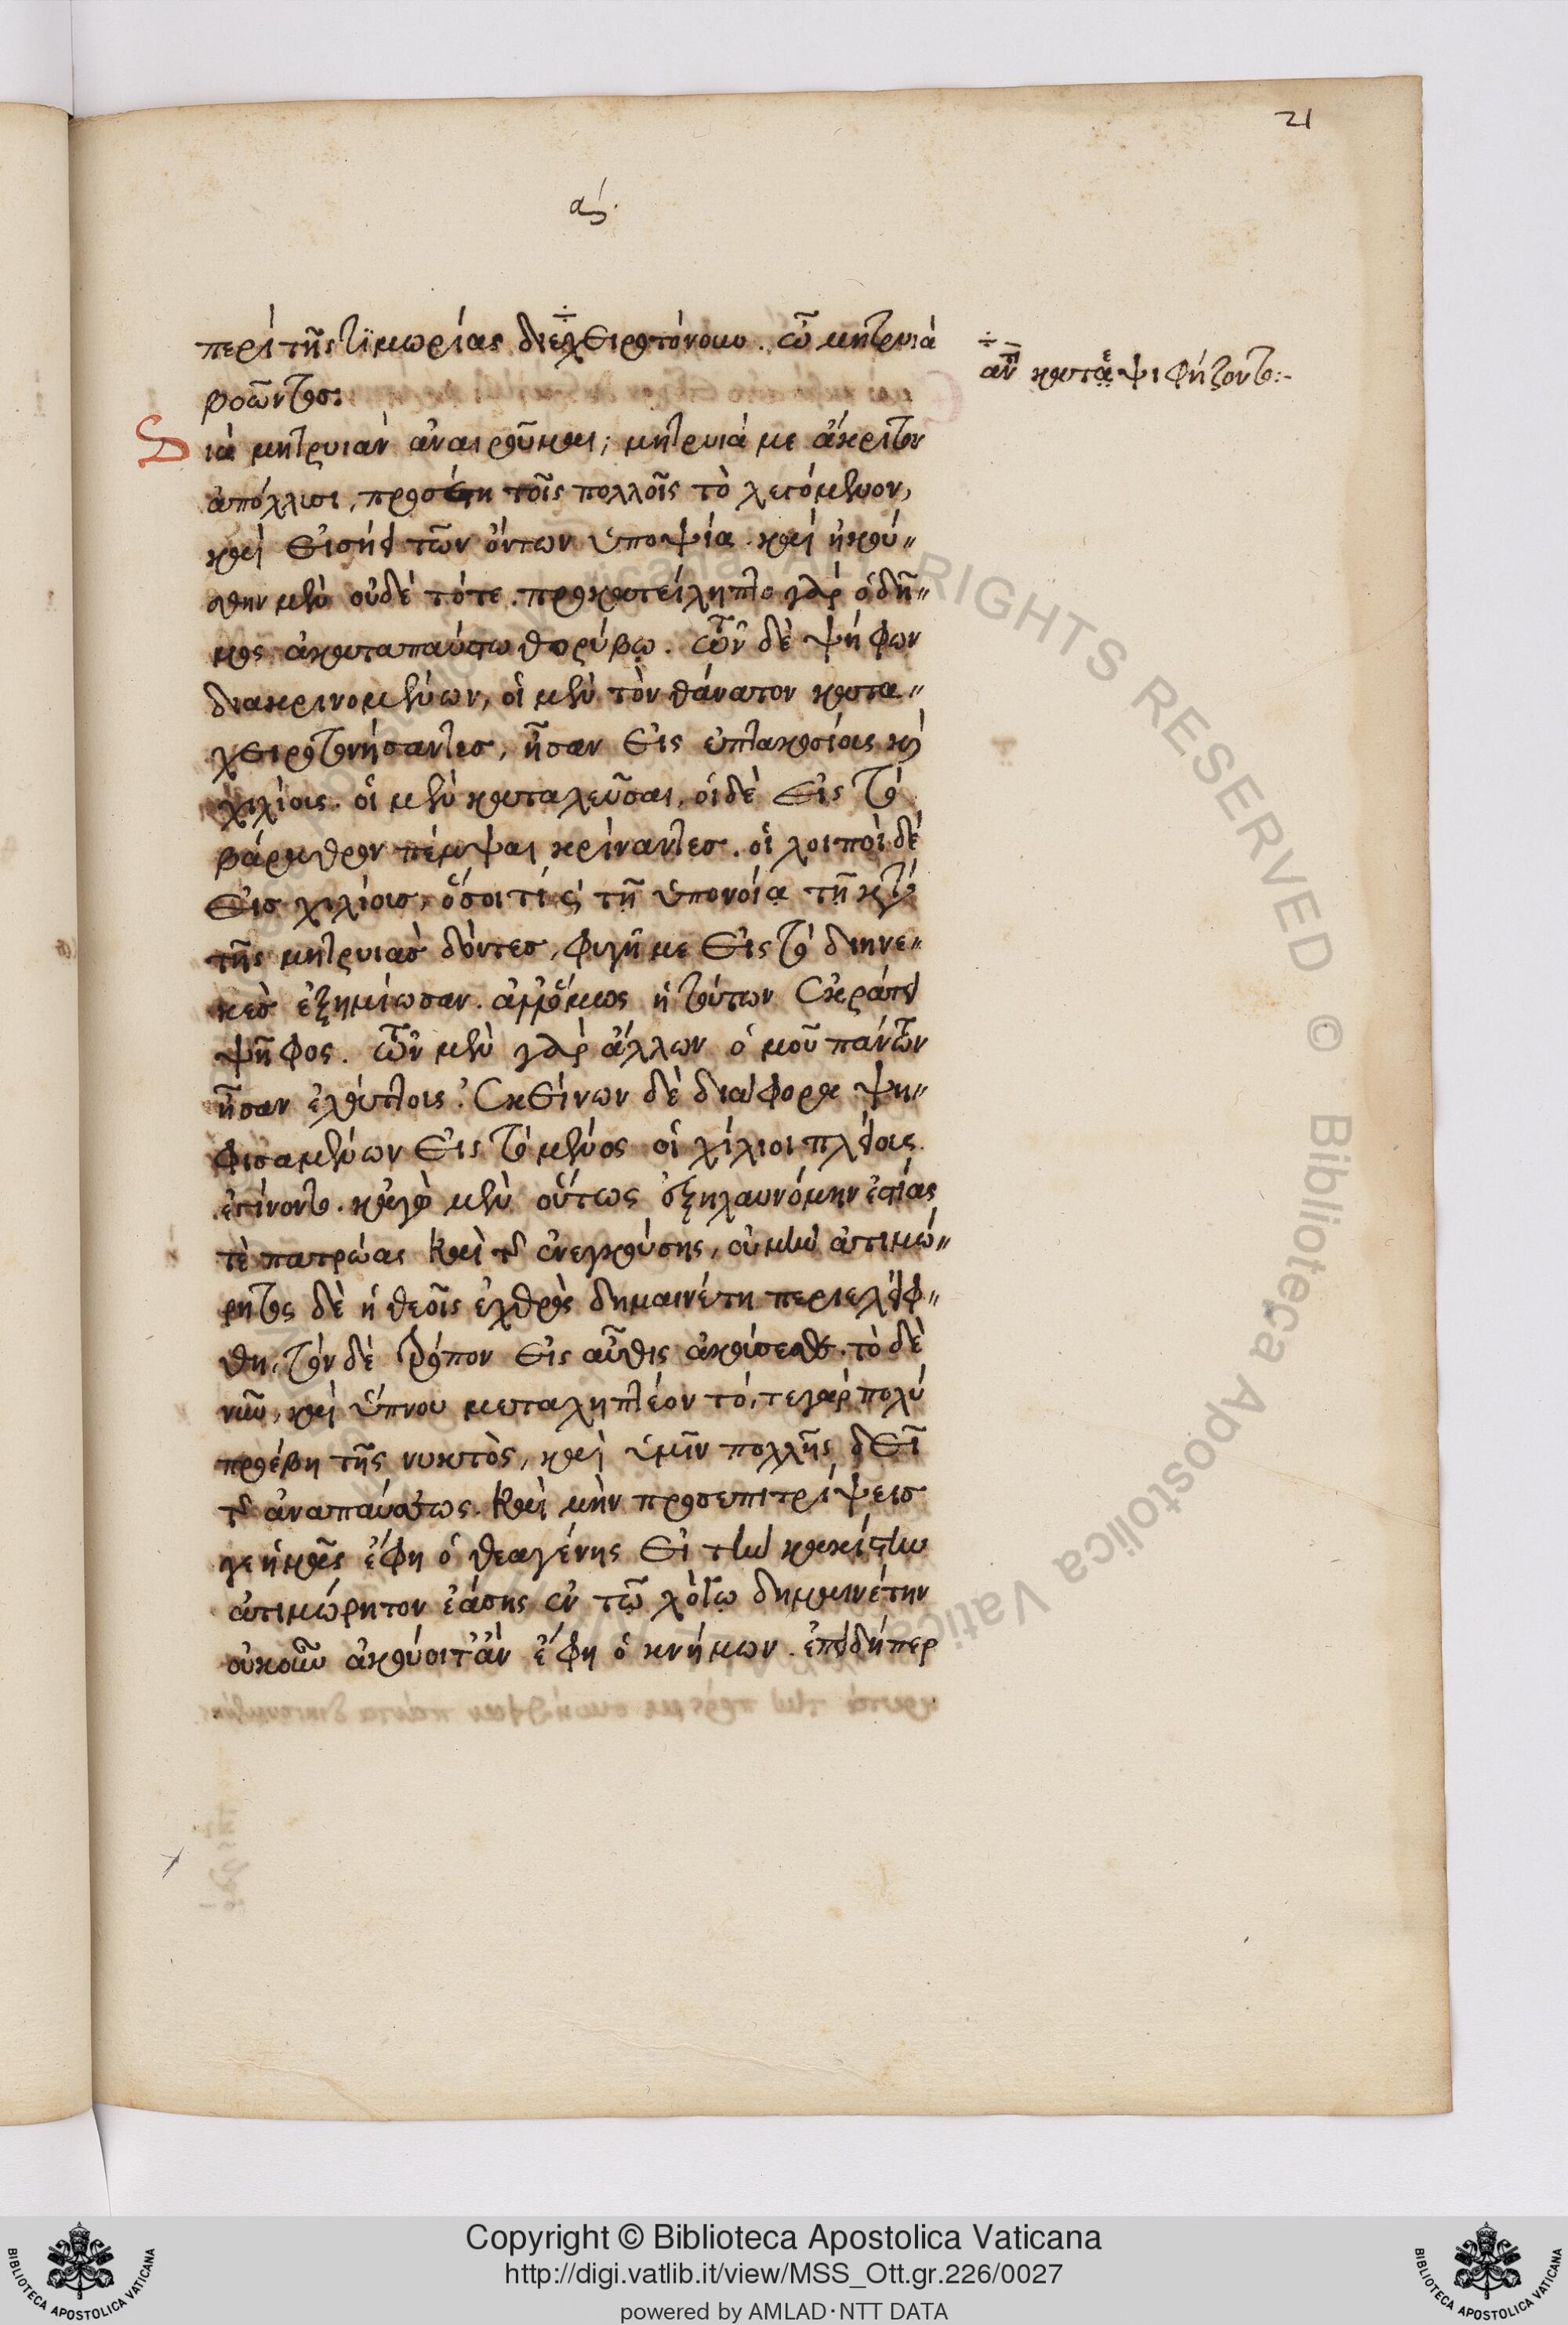 21
αʹ.
περὶ τῆς τϊμωρίας διεχειροτόνουν. ὦ μητρυιὰ
ἀντὶ τοῦ κατεψιφήζοντο:-
βοῶντος:
Διὰ μητρυιὰν ἀναιροῦμαι; μητρυιά με ἄκριτον
ἀπόλλισι, προσέστη τοῖς πολλοῖς τὸ λεγόμενον,
καὶ εἰσήει τῶν ὄντων ὑποψία. καὶ ἠκού„
σθην μὲν οὐδὲ τότε. προκατείληπτο γὰρ ὁ δῆ„
μος ἀκαταπαύστω θορύβῳ. τῶν δὲ ψήφων
διακρινομένων, οἱ μὲν τὸν θάνατον κατα„
χειροτονήσαντεσ, ἦσαν εἰς ἑπτακοσίους καὶ
χιλίους. οἱ μὲν καταλεῦσαι, οἱ δὲ εἰς τὸ
βάραθρον πέμψαι κρίναντεσ. οἱ λοιποὶ δὲ
εἰσ χιλίουσ, ὅσοι τί καὶ τῇ ὑπονοίᾳ τῇ κατὰ
τῆς μητρυιᾶσ δόντεσ, φυγῇ με εἰς τὸ διηνε„
κεσ ἐζημίωσαν. ἀλλ' ὅμως ἡ τούτων ἐκράτει
ψῆφος. τῶν μὲν γὰρ ἄλλων ὁμοῦ πάντων
ἦσαν ἐλάττους. ἐκείνων δὲ διάφορα ψη„
φισαμένων εἰς τὸ μένος οἱ χίλιοι πλείους
ἐγίνοντο. κἀγὼ μὲν οὕτως ἐξηλαυνόμην ἑστίας
τὲ πατρώας καὶ τῆς ἐνεγκούσης, οὐ μὴν ἀτιμώ„
ρητος δὲ ἡ θεοῖς ἐχθρὸς δημαινέτη περιελείφ„
θη, τὸν δὲ τρόπον εἰς αὖθις ἀκούσεσθε. τὸ δὲ
νῦν, καὶ ὕπνου μεταληπτέον τό, τε γὰρ πολὺ
προέβη τῆς νυκτὸς, καὶ ὑμῖν πολλῆς δεῖ
τῆς ἀναπαύσεως. καὶ μὴν προσεπιτρίψεισ
γε ἡμᾶς ἔφη ὁ θεαγένης εἰ τὴν κακίστην
ἀτιμώρητον ἐάσης ἐν τῷ λόγῳ δημαινέτην
οὐκοῦν ἀκούοιτ' ἂν ἔφη ὁ κνήμων. ἐπειδήπερ
Copyright © Biblioteca Apostolica Vaticana
http://digi.vatlib.it/view/MSS_Ott.gr.226/0027
powered by AMLAD·NTT DATA
BIBLIOTECA APOSTOLICA VATICANA
BIBLIOTECA APOSTOLICA VATICANA